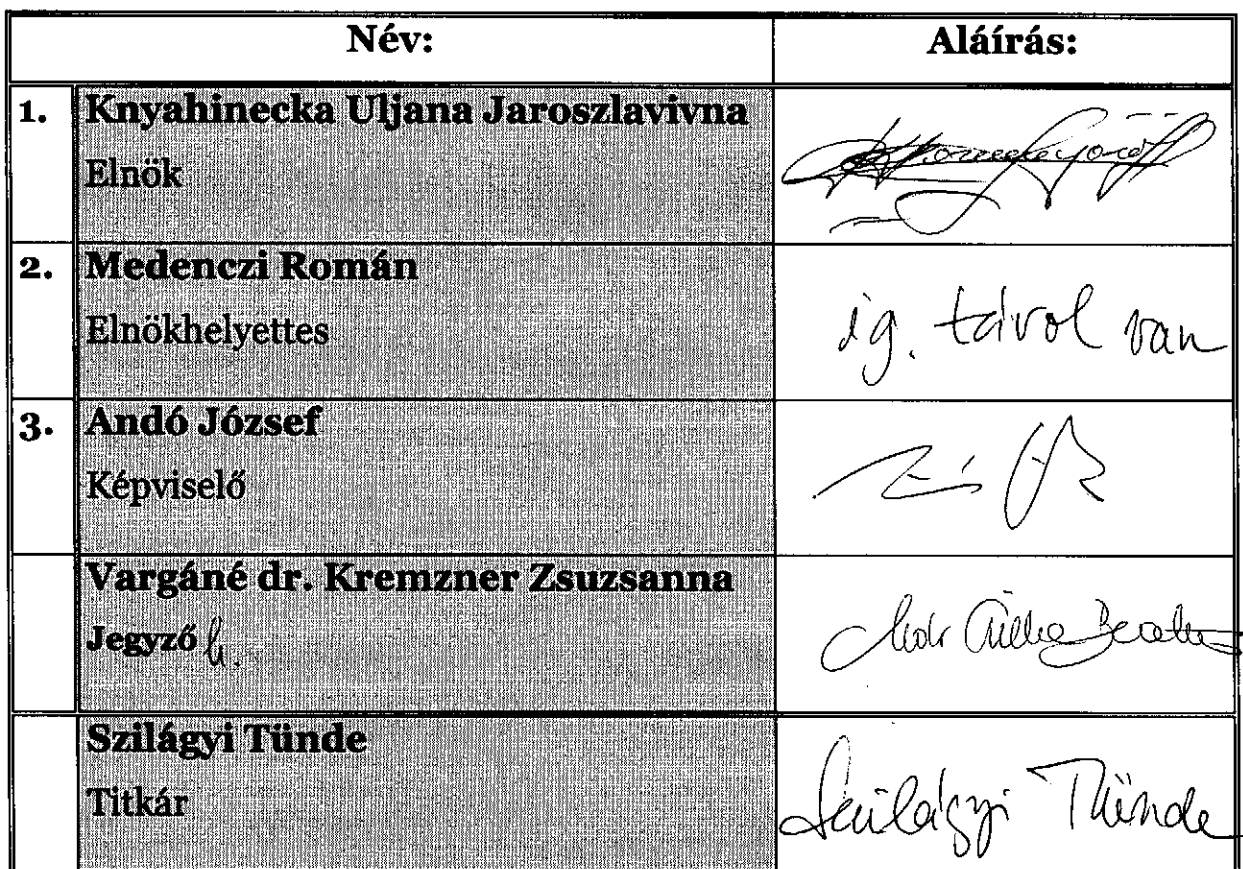 Név: Aláírás:
1. Knyahinecka Uljana Jaroszlavivna
Elnök
2. Medenczi Román
Elnökhelyettes
ig. távol van
3. Andó József
Képviselő
Vargáné dr. Kremzner Zsuzsanna
Jegyző h.
Szilágyi Tünde
Titkár
Szilágyi Tünde